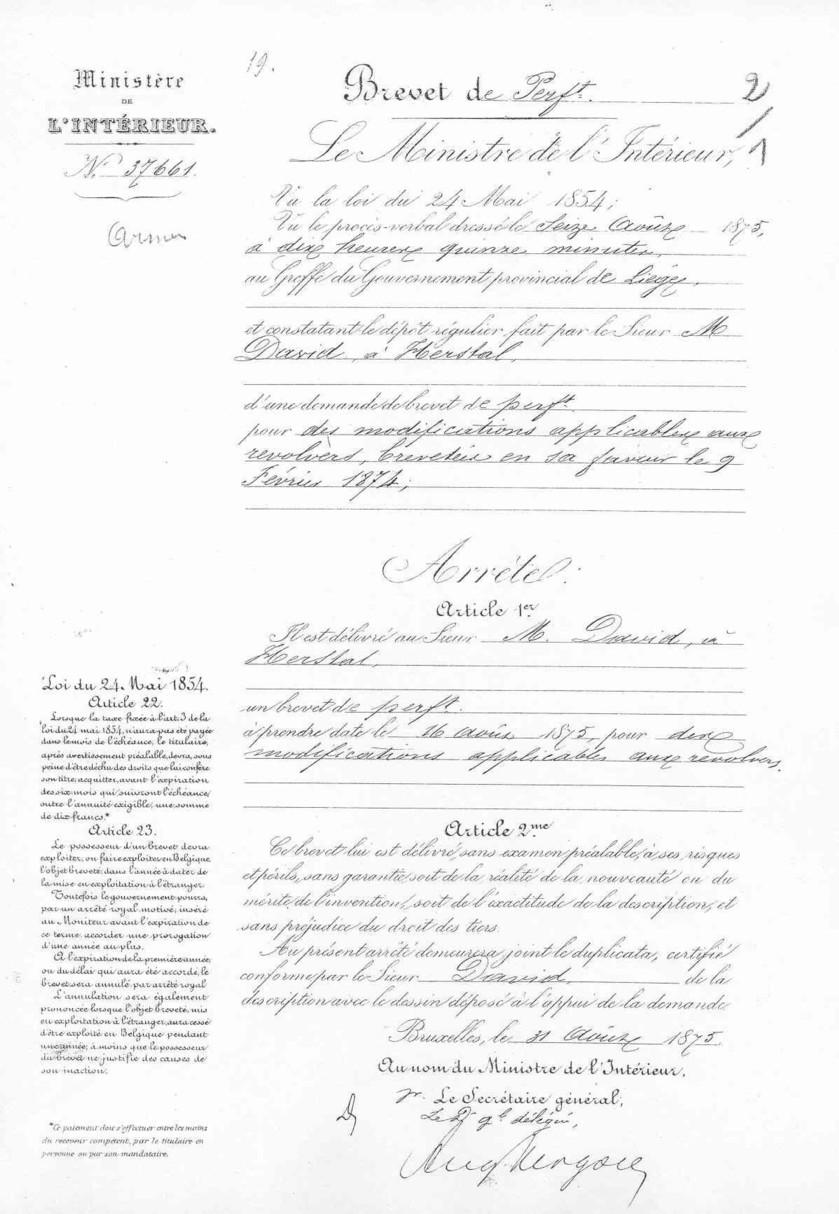 19.
Ministère
DE
L'INTÉRIEUR.
N° 37661.
Armes
Brevet de Perft.
2/1
Le Ministre de l'Intérieur,
Vu la loi du 24 Mai 1854;
Vu le procès-verbal dressé le seize Août 1875,
à dix heures quinze minutes,
au Greffe du Gouvernement provincial de Liège,
et constatant le dépôt régulier fait par le Sieur M
David, à Herstal,
d'une demande de brevet de perft.
pour des modifications applicables aux
revolvers, brevetés en sa faveur le 9
Février 1874;
Arrête:
Article 1er
Il est délivré au Sieur M. David, à
Herstal,
un brevet de perft.
à prendre date le 16 août 1875, pour des
modifications applicables aux revolvers.
Article 2me
Ce brevet lui est délivré sans examen préalable, à ses risques
et périls, sans garantie, soit de la réalité de la nouveauté ou du
mérite de l'invention, soit de l'exactitude de la description, et
sans préjudice du droit des tiers.
Au présent arrêté demeurera joint le duplicata, certifié
conforme par le Sieur David, de la
description avec le dessin déposé à l'appui de la demande
Bruxelles, le 31 Août 1875.
Au nom du Ministre de l'Intérieur,
Le Secrétaire général,
délégué,
Loi du 24 Mai 1854.
Article 22.
Lorsque la taxe fixée à l'art: 3 de la
loi du 24 mai 1854, n'aura pas été payée
dans le mois de l'échéance, le titulaire,
après avertissement préalable, devra, sous
peine d'être déchu des droits que lui confère
son titre, acquitter, avant l'expiration
des six mois qui suivront l'échéance,
outre l'annuité exigible, une somme
de dix francs.*
Article 23.
Le possesseur d'un brevet devra
exploiter, ou faire exploiter en Belgique,
l'objet breveté, dans l'année à dater de
la mise en exploitation à l'étranger.
Toutefois le gouvernement pourra,
par un arrêté royal motivé, inséré
au Moniteur avant l'expiration de
ce terme, accorder une prorogation
d'une année au plus.
A l'expiration de la première année,
ou du délai qui aura été accordé, le
brevet sera annulé par arrêté royal
L'annulation sera également
prononcée lorsque l'objet breveté, mis
en exploitation à l'étranger, aura cessé
d'être exploité en Belgique pendant
une année, à moins que le possesseur
du brevet ne justifie des causes de
son inaction.
*Ce paiement doit s'effectuer entre les mains
du receveur compétent, par le titulaire en
personne ou par son mandataire.